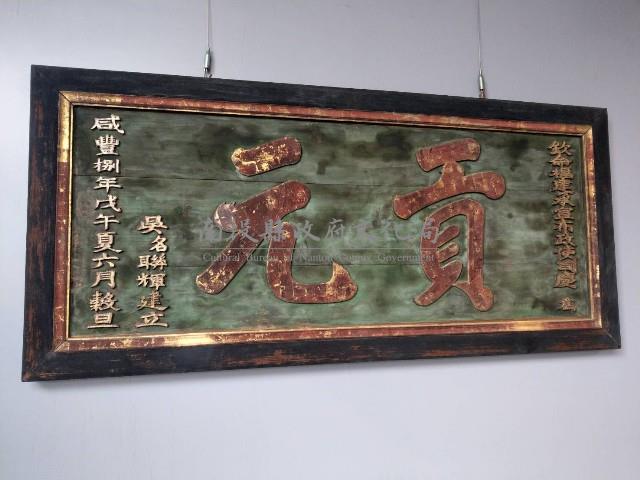 欽命福建承宣布政使司慶 為
貢元
吳名聯輝建立
咸豐捌年戊午夏六月穀旦
南投縣政府文化局
Cultural Bureau of Nantou County Government